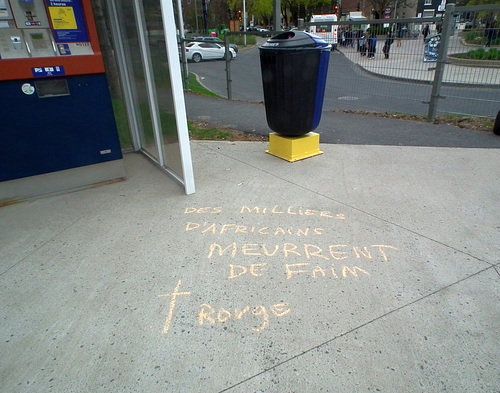 DES MILLIERS
D'AFRICAINS
MEURRENT
DE FAIM
† Rouge